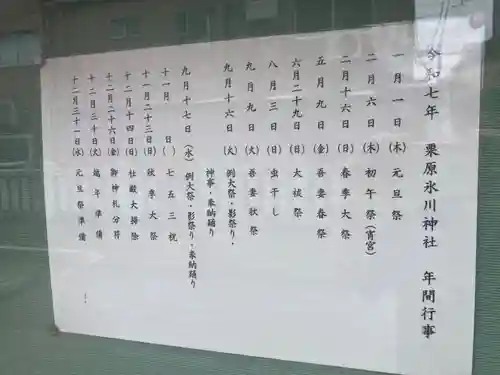 令和七年 栗原氷川神社 年間行事
一月一日(木) 元旦祭
二月六日(木) 初午祭(宵宮)
二月十六日(日) 春季大祭
五月九日(金) 吾妻春祭
六月二十九日(日) 大祓
八月三日(日) 虫干し
九月九日(火) 吾妻秋祭
九月十六日(火) 例大祭・影祭り・
神事・奉納踊り
九月十七日(水) 例大祭・影祭り・奉納踊り
十一月 日( ) 七五三祝
十一月二十三日(日) 秋季大祭
十二月十四日(日) 社殿大掃除
十二月二十六日(金) 御神札分符
十二月三十日(火) 越年準備
十二月三十一日(水) 元旦祭準備